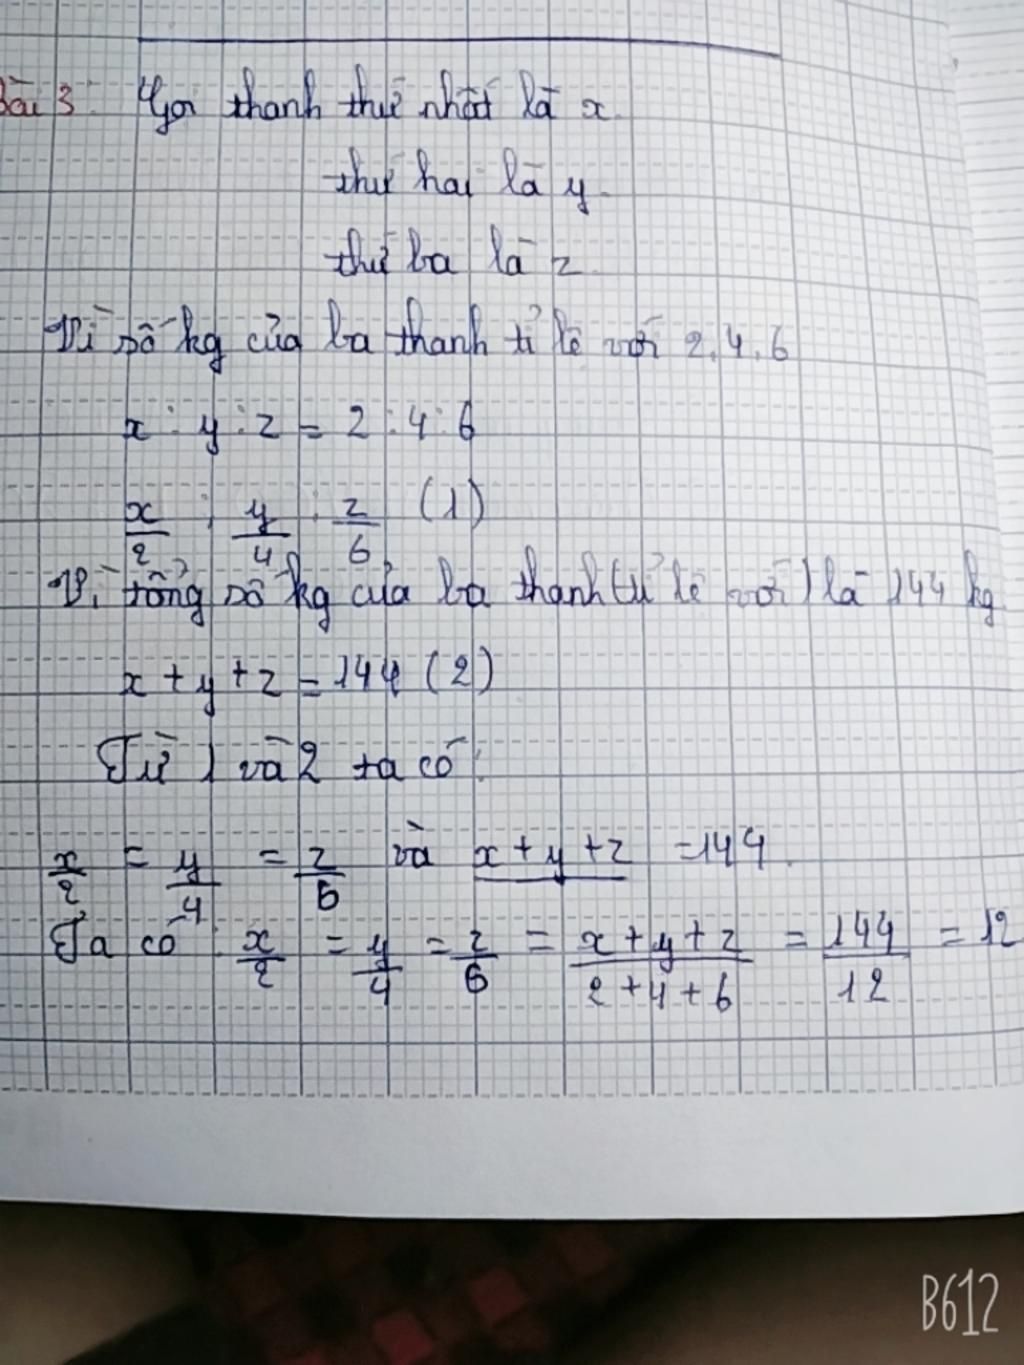 Bài 3: Gọi thanh thứ nhất là x.
thứ hai là y.
thứ ba là z
Vì số kg của ba thanh tỉ lệ với 2, 4, 6
x : y : z = 2 : 4 : 6
x/2 : y/4 : z/6 (1)
Vì tổng số kg của ba thanh (tỉ lệ với) là 144 kg
x + y + z = 144 (2)
Từ 1 và 2 ta có:
x/2 = y/4 = z/6 và x + y + z = 144.
Ta có: x/2 = y/4 = z/6 = x + y + z / 2 + 4 + 6 = 144/12 = 12
B612